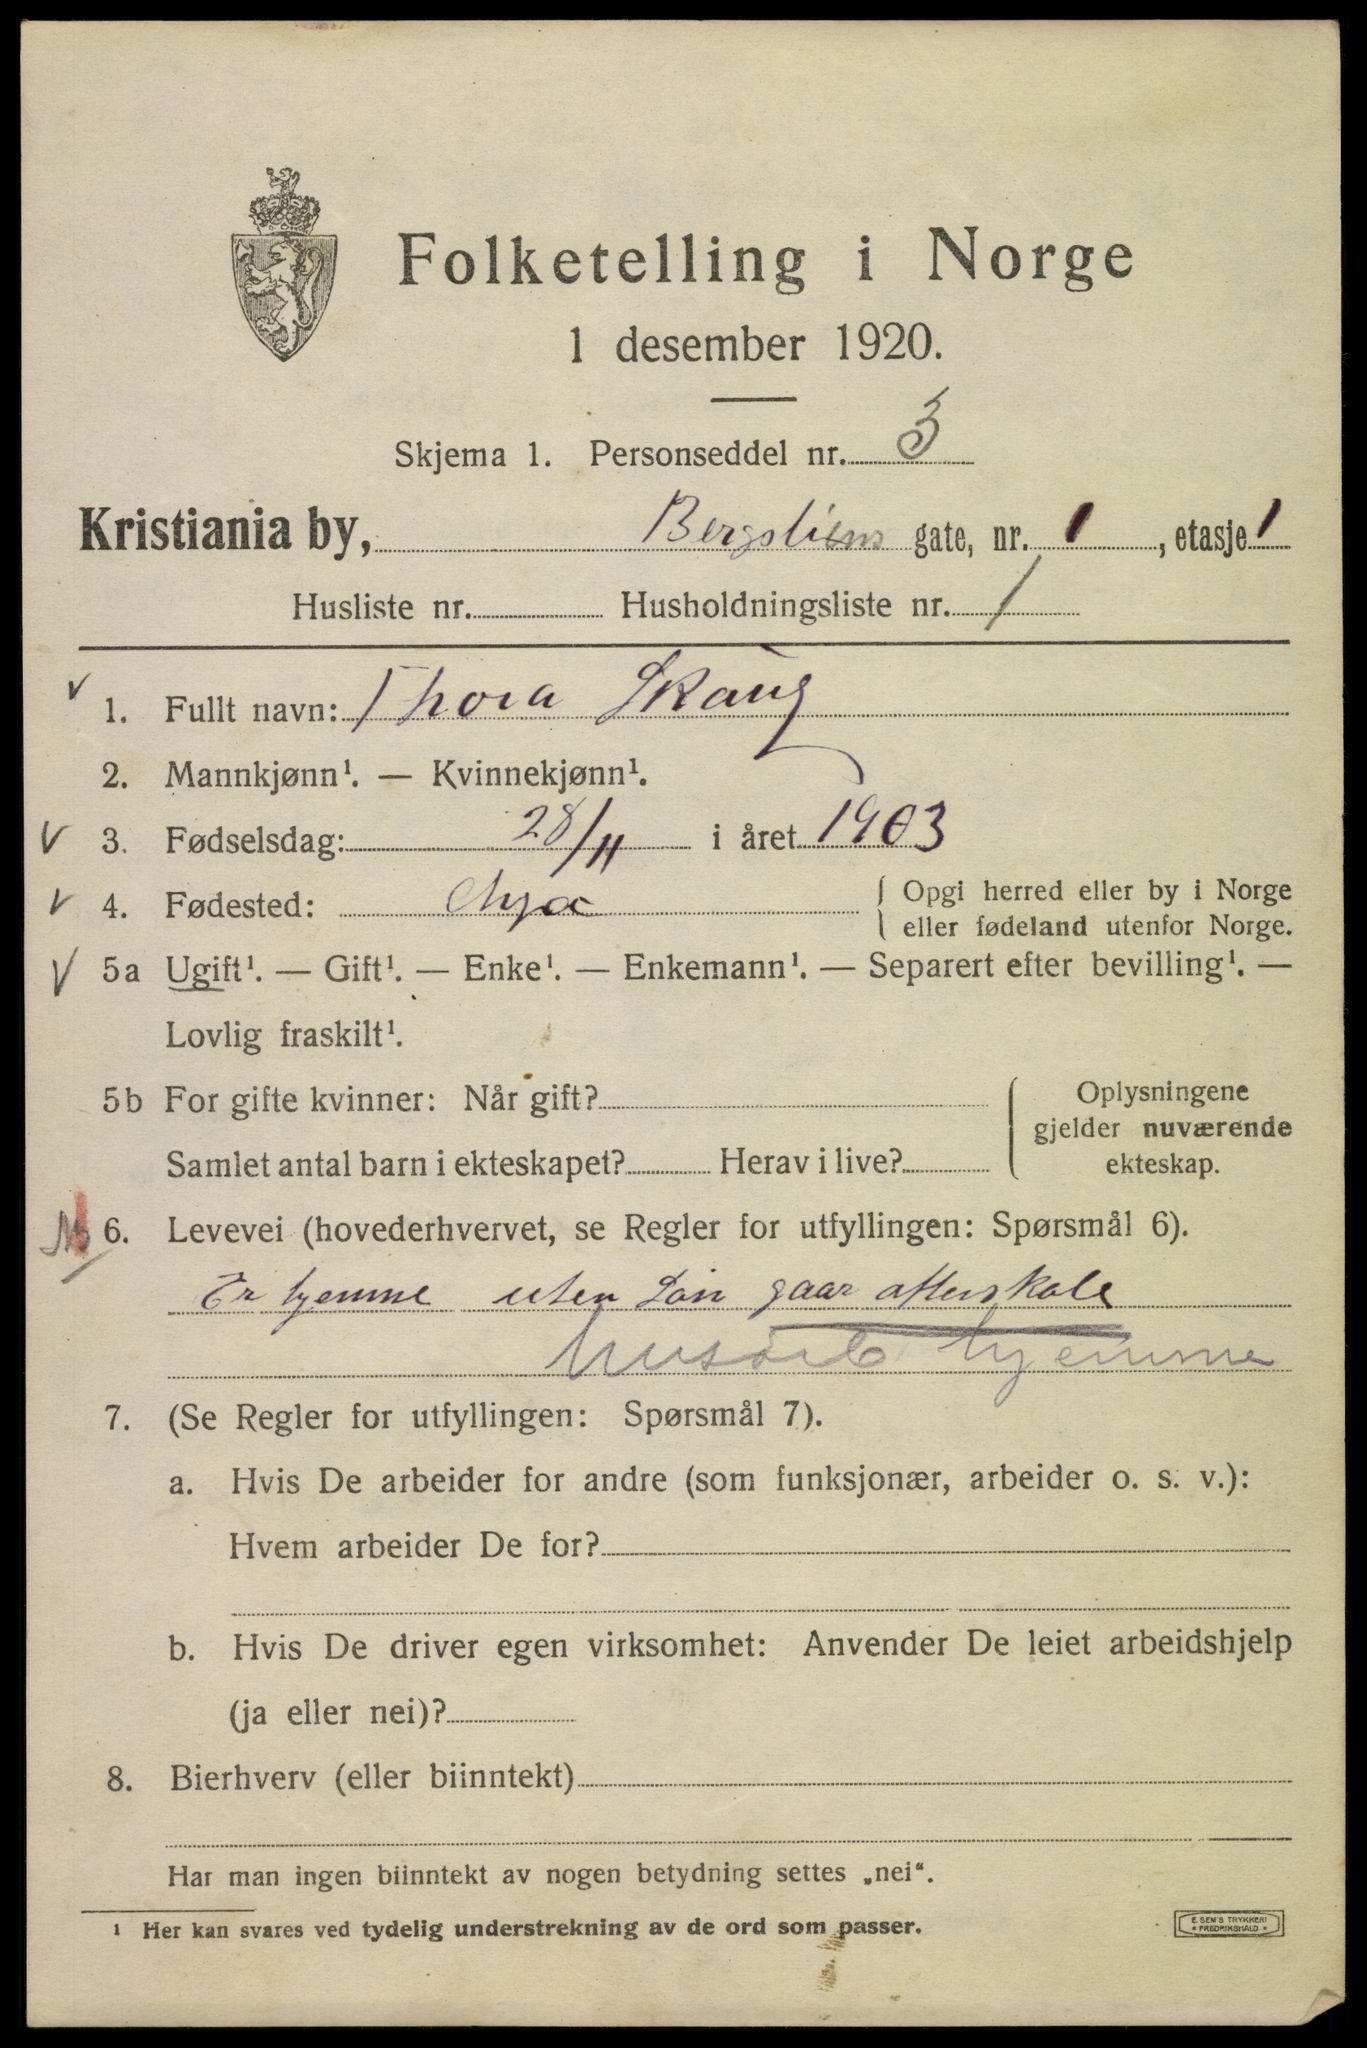 Folketelling i Norge
1 desember 1920.
Skjema 1. Personseddel nr. 3
Kristiania by, Bergsliens gate, nr. 1, etasje 1
Husliste nr. Husholdningsliste nr. 1
1. Fullt navn: Thora Skaug
2. Mannkjønn¹. — Kvinnekjønn¹.
3. Fødselsdag: 28/11 i året 1903
4. Fødested: { Opgi herred eller by i Norge
eller fødeland utenfor Norge.
5a Ugift¹. — Gift¹. — Enke¹. — Enkemann¹. — Separert efter bevilling¹. —
Lovlig fraskilt¹.
5b For gifte kvinner: Når gift? { Oplysningene
gjelder nuværende
Samlet antal barn i ekteskapet? Herav i live? ekteskap.
6. Levevei (hovederhvervet, se Regler for utfyllingen: Spørsmål 6).
Er hjemme uten Løn gaar afterskole
husarb hjemme
7. (Se Regler for utfyllingen: Spørsmål 7).
a. Hvis De arbeider for andre (som funksjonær, arbeider o. s. v.):
Hvem arbeider De for?
b. Hvis De driver egen virksomhet: Anvender De leiet arbeidshjelp
(ja eller nei)?
8. Bierhverv (eller biinntekt)
Har man ingen biinntekt av nogen betydning settes „nei“.
¹ Her kan svares ved tydelig understrekning av de ord som passer.
E. SEM'S TRYKKERI
* FREDRIKSHALD *